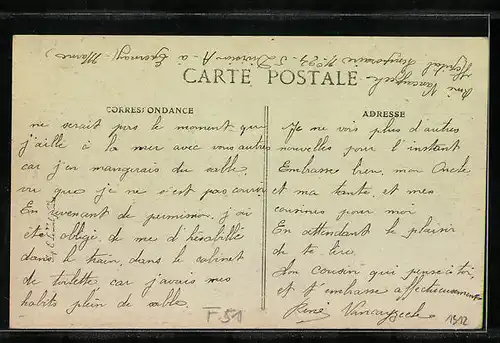 René Vancaegzeele
Hôpital Temporaire N° 23 - 5e Division A - à Epernay (Marne)
CARTE POSTALE
CORRESPONDANCE
ne serait pas le moment que
j'aille à la mer avec vous autres
car j'en mangerais du sable,
vu que je ne s'est pas courir
En revenant de permission, j'ai
été obligé de me d'ésabillé
dans le train, dans le cabinet
de toilette, car j'avais mes
habits plein de sable
ADRESSE
Je ne vois plus d'autres
nouvelles pour l'instant
Embrasse bien, mon Oncle
et ma tante et mes
cousines pour moi
En attendant le plaisir
de te lire
Ton cousin qui pense à toi
et t'embrasse affectueusement
René
F51
1912